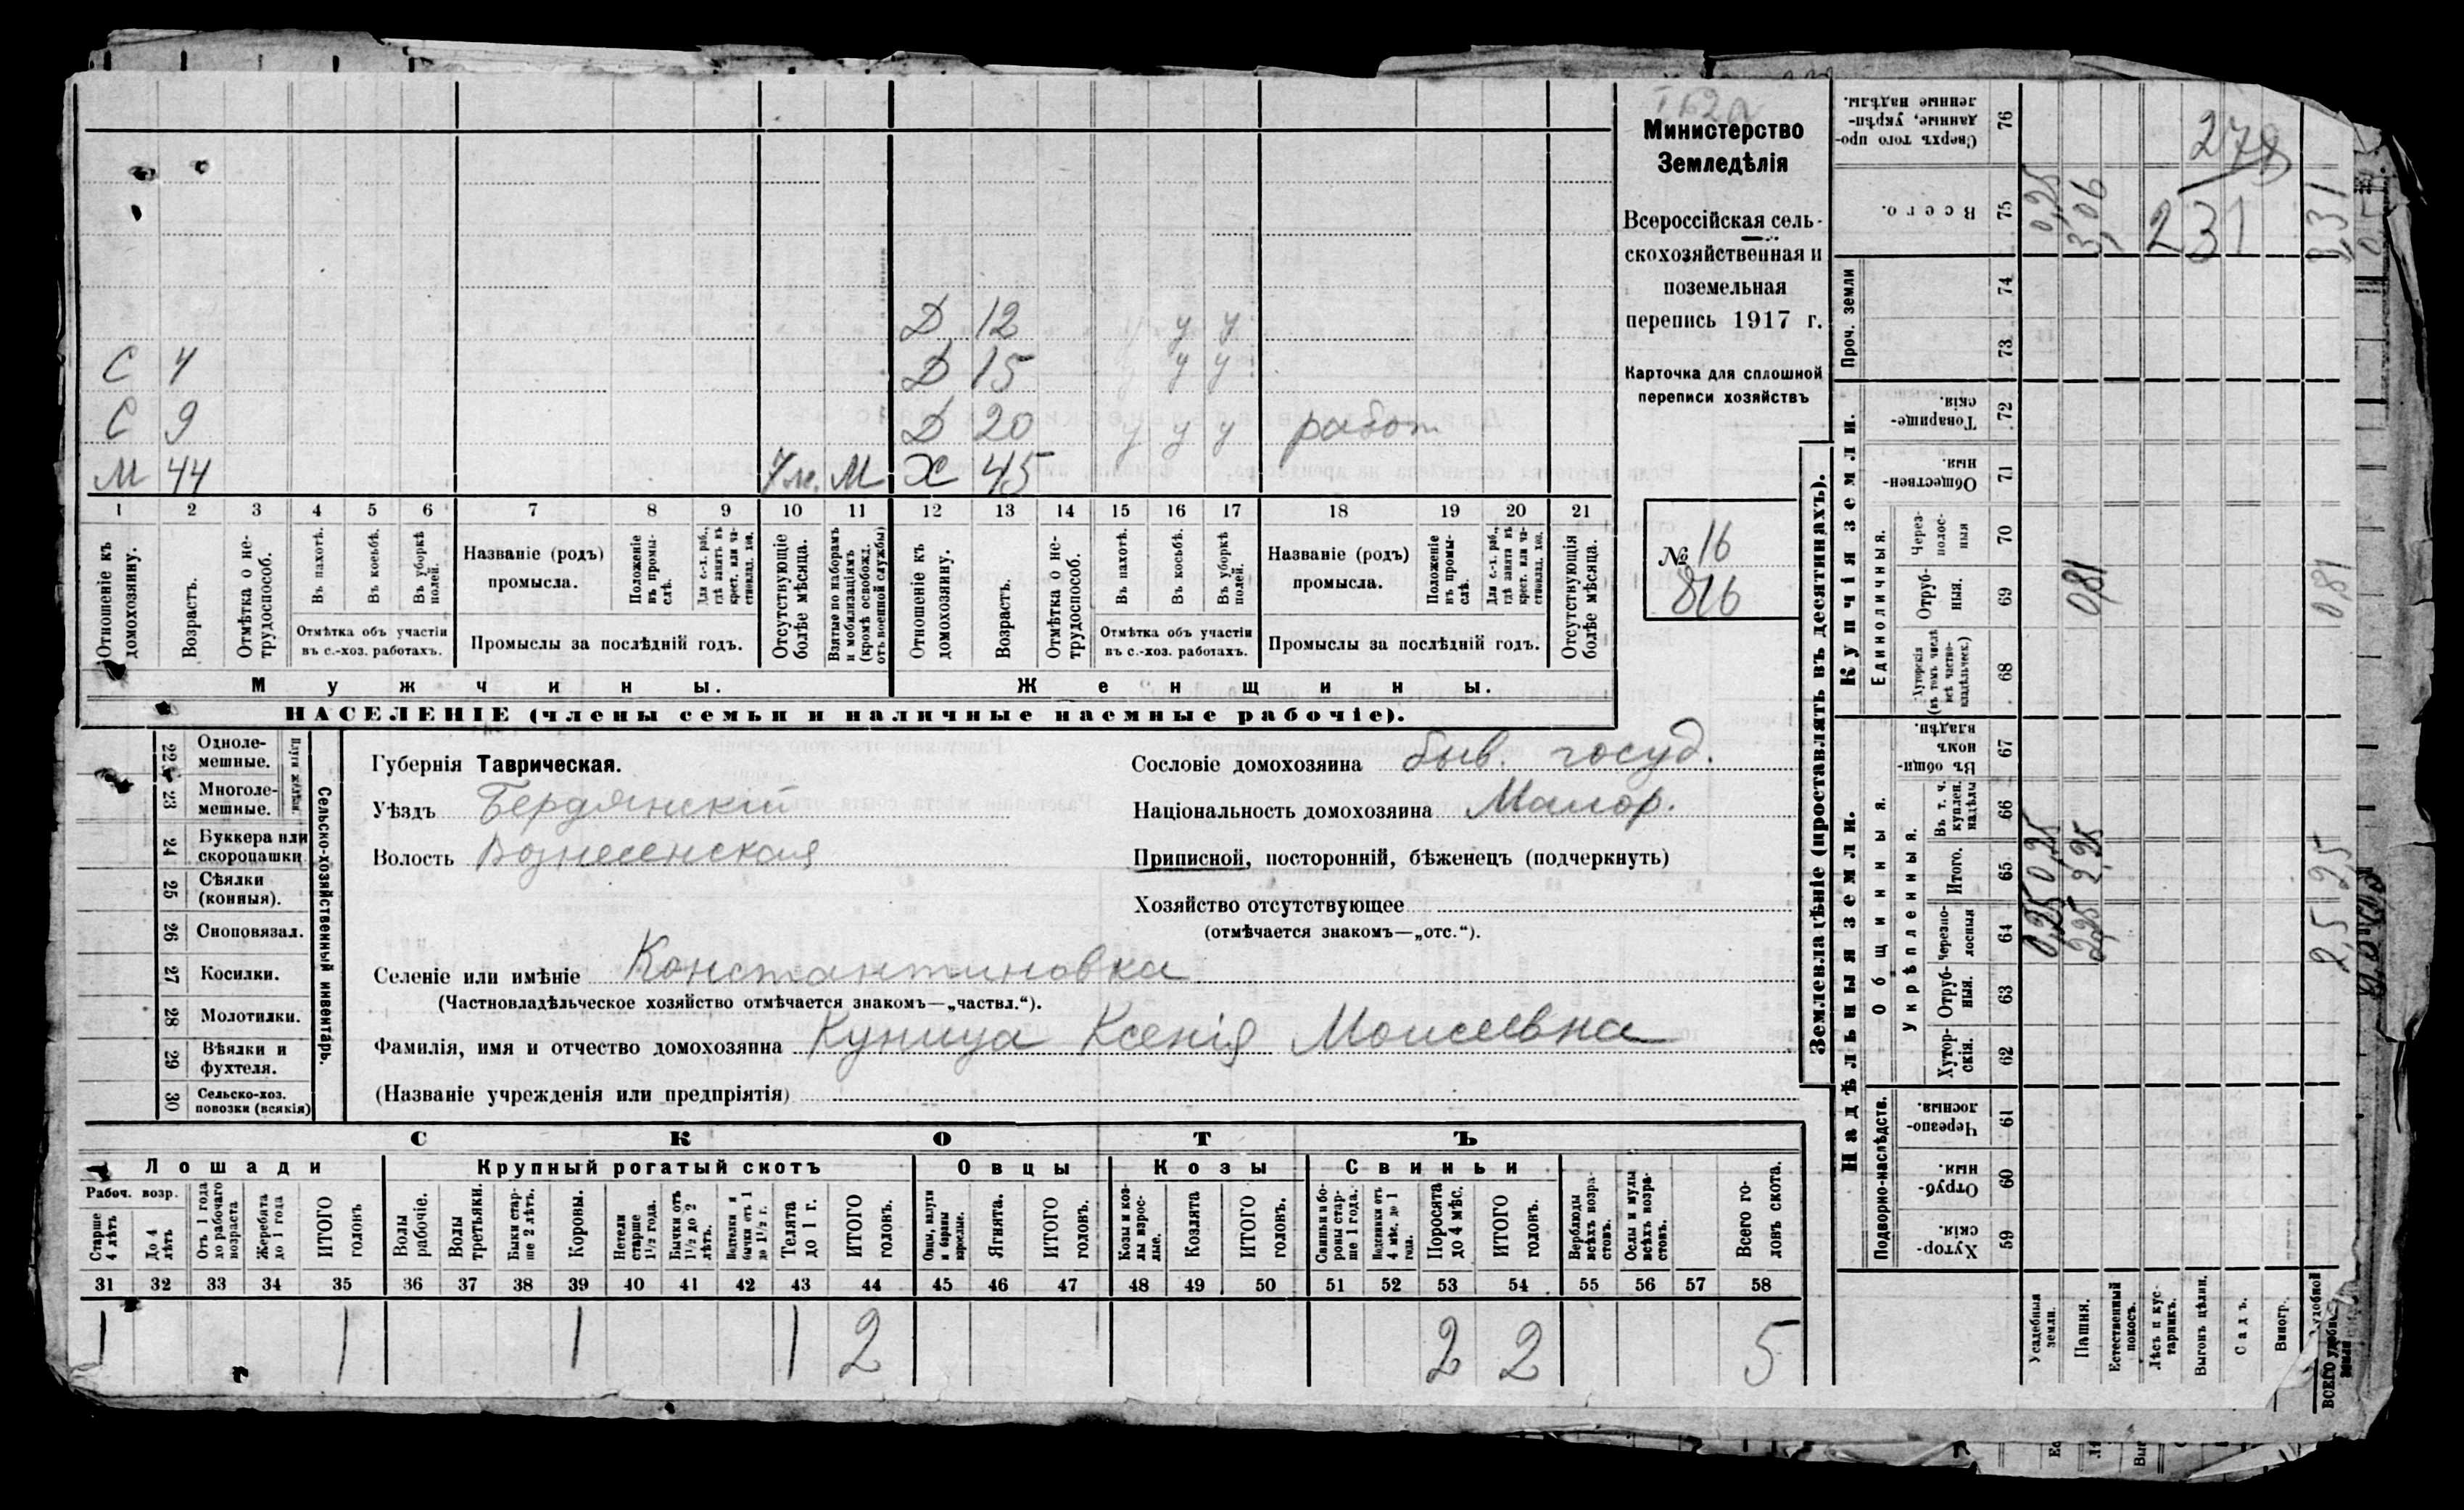 Министерство
Земледѣлія
Всероссійская сель-
скохозяйственная и
поземельная
перепись 1917 г.
Карточка для сплошной
переписи хозяйствъ
№ 16
816
Д 12 у у
С 4 Д 15 у у
С 9 Д 20 у у у работ
М 44 7 м. М Х 45
1 2 3 4 5 6 7 8 9 10 11 12 13 14 15 16 17 18 19 20 21
Отношеніе къ домохозяину.
Возрастъ.
Отмѣтка о не-трудоспособ.
Въ пахотѣ.
Въ косьбѣ.
Въ уборкѣ полей.
Отмѣтка объ участіи
въ с.-хоз. работахъ.
Названіе (родъ)
промысла.
Положеніе въ промы-слѣ.
Для с.-х. раб., гдѣ занятъ въ крест. или ча-стновлад. хоз.
Промыслы за послѣдній годъ.
Отсутствующіе болѣе мѣсяца.
Взятые по наборамъ и мобилизаціямъ (кромѣ освобожд. отъ военной службы)
Отношеніе къ домохозяину.
Возрастъ.
Отмѣтка о не-трудоспособ.
Въ пахотѣ.
Въ косьбѣ.
Въ уборкѣ полей.
Отмѣтка объ участіи
въ с.-хоз. работахъ.
Названіе (родъ)
промысла.
Положеніе въ промы-слѣ.
Для с.-х. раб., гдѣ занятъ въ крест. или ча-стновлад. хоз.
Промыслы за послѣдній годъ.
Отсутствующія болѣе мѣсяца.
Мужчины. Женщины.
НАСЕЛЕНІЕ (члены семьи и наличные наемные рабочіе).
Сельско-хозяйственный инвентарь.
22 Одноле-мешные.
23 Многоле-мешные.
24 Буккера или скоропашки
25 Сѣялки (конныя).
26 Сноповязал.
27 Косилки.
28 Молотилки.
29 Вѣялки и фухтеля.
30 Сельско-хоз. повозки (всякія)
Губернія Таврическая.
Уѣздъ Бердянскій
Волость Вознесенская
Сословіе домохозяина быв. госуд.
Національность домохозяина Малор.
Приписной, посторонній, бѣженецъ (подчеркнуть)
Хозяйство отсутствующее
(отмѣчается знакомъ—„отс.“).
Селеніе или имѣніе Константиновка
(Частновладѣльческое хозяйство отмѣчается знакомъ—„частвл.“).
Фамилія, имя и отчество домохозяина Куница Ксенія Моисеевна
(Названіе учрежденія или предпріятія)
СКОТЪ
Лошади Крупный рогатый скотъ Овцы Козы Свиньи
Рабоч. возр.
Старше 4 лѣтъ
До 4 лѣтъ
Отъ 1 года до рабочаго возраста
Жеребята до 1 года
ИТОГО головъ
Волы рабочіе.
Волы третьяки.
Быки стар-ше 2 лѣтъ.
Коровы.
Нетели старше 1½ года.
Бычки отъ 1½ до 2 лѣтъ.
Телята до 1 г.
ИТОГО головъ.
Ягнята.
ИТОГО головъ.
Козы и коз-лы взрос-лые.
Козлята
ИТОГО головъ.
Свиньи и бо-ровы стар-ше 1 года.
Подсвинки отъ 4 мѣс. до 1 года.
Поросята до 4 мѣс.
ИТОГО головъ.
Верблюды всѣхъ возра-стовъ.
Ослы и мулы всѣхъ возра-стовъ.
Всего го-ловъ скота.
31 32 33 34 35 36 37 38 39 40 41 42 43 44 45 46 47 48 49 50 51 52 53 54 55 56 57 58
1 1 1 1 2 2 2 5
Землевладѣніе (проставлять въ десятинахъ).
Надѣльныя земли. Купчія земли. Проч. земли
Подворно-наслѣдств. Общинныя. Укрѣпленныя. Единоличныя.
Хутор-скія. 59
Отруб-ныя. 60
Черезпо-лосныя. 61
Хутор-скія. 62
Отруб-ныя. 63
Черезпо-лосныя 64
Итого. 65
Въ т. ч. куплен. надѣлы 66
Въ общин-номъ владѣн. 67
Хуторскія (въ томъ числѣ всѣ частно-владѣльческ.) 68
Отруб-ныя. 69
Через-полос-ныя 70
Обществен-ныя. 71
Товарище-скія. 72
73
74
Всего. 75
Сверхъ того про-данные, укрѣп-ленные надѣлы. 76
Усадебныя земли. 0,25 0,25 0,25
Пашня. 2,25 2,25 0,81 3,06
Естественный покосъ.
Лѣсъ и кус-тарникъ.
Выгонъ цѣлин.
Садъ.
Виногр.
231
278
2,5 2,5 0,81 3,31